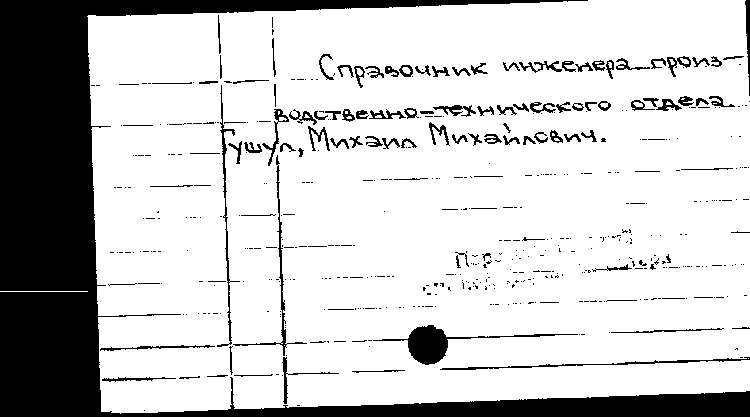 Справочник инженера произ-
водственно-технического отдела
Гушул, Михаил Михайлович.